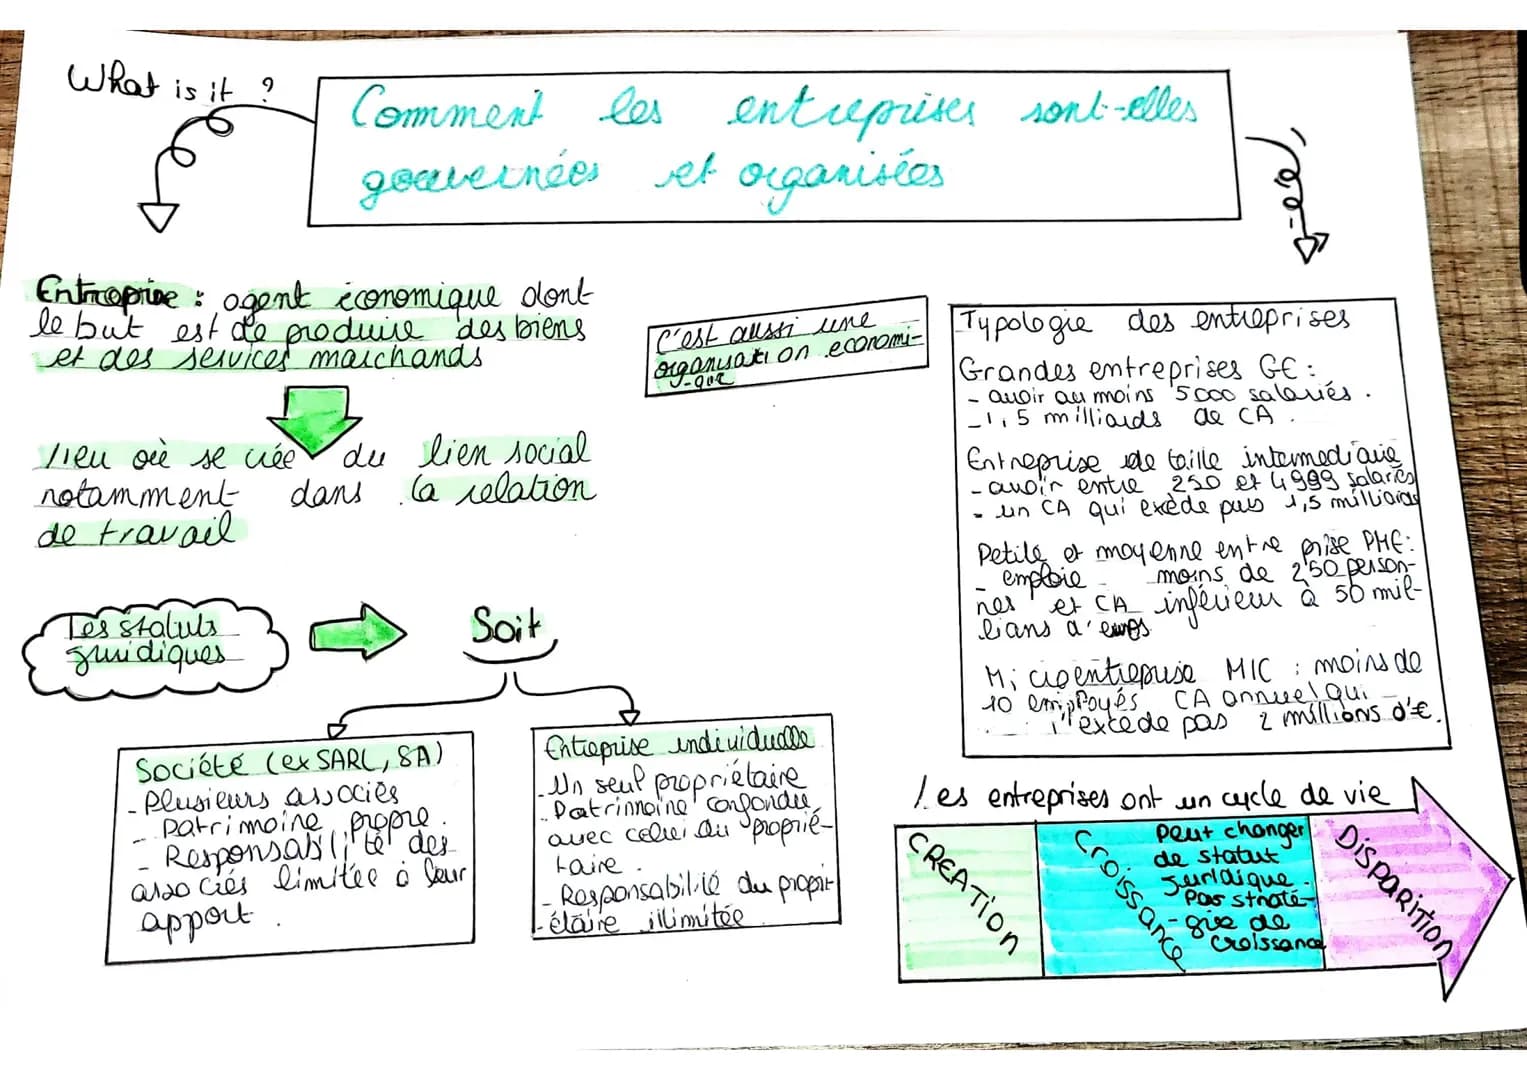 What is it ?
Comment les entreprises sont-elles
gouvernées et organisées
Entreprise : agent économique dont
le but est de produire des biens
et des services marchands
Lieu où se crée du lien social
notamment dans la relation
de travail
C'est aussi une
organisation economi-
-que
Typologie des entreprises
Grandes entreprises GE :
- avoir au moins 5000 salariés .
- 1,5 milliards de CA .
Entreprise de taille intermediaire
- avoir entre 250 et 4999 salariés
- un CA qui exède pas 1,5 milliards
Petite et moyenne entreprise PME:
- emploie moins de 250 person-
nes et CA inférieur à 50 mil-
lians d'euros
Microentreprise MIC : moins de
10 employés CA annuel qui
n'excede pas 2 millions d'€.
Les statuts
juridiques
Soit
Société (ex SARL, SA)
- Plusieurs associés
- Patrimoine propre .
- Responsabilité des
associés limitée à leur
apport .
Entreprise individuelle
- Un seul propriétaire
- Patrimoine confondu
avec celui du proprié-
taire .
- Responsabilité du propri-
-étaire illimitée
Les entreprises ont un cycle de vie
CREATION
Croissance
Peut changer
de statut
Juridique .
Pas straté-
-gie de
croissance
Disparition